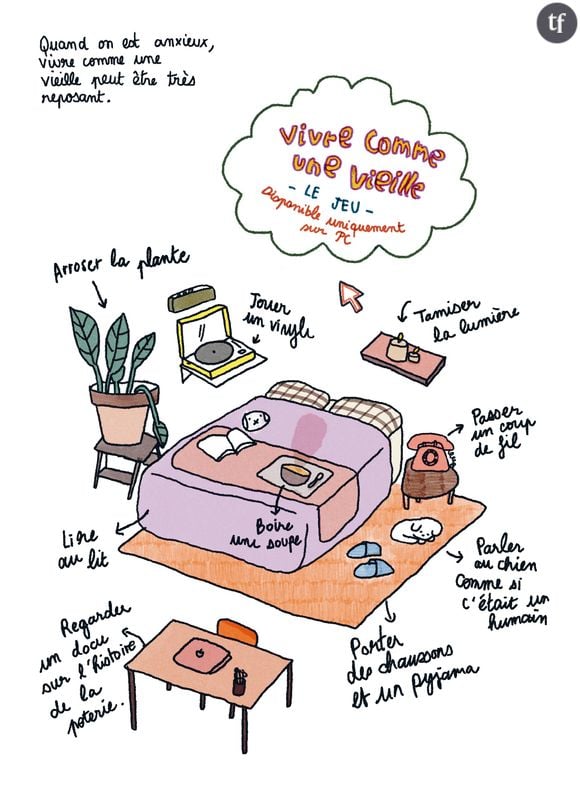 tf
Quand on est anxieux,
vivre comme une
vieille peut être très
reposant.
Vivre comme
une vieille
- LE JEU -
Disponible uniquement
sur PC
Arroser la plante
Jouer
un vinyle
Tamiser
la lumière
Passer
un coup
de fil
Lire
au lit
Boire
une soupe
Parler
au chien
comme si
c'était un
humain
Regarder
un docu
sur l'histoire
de la
poterie.
Porter
des chaussons
et un pyjama